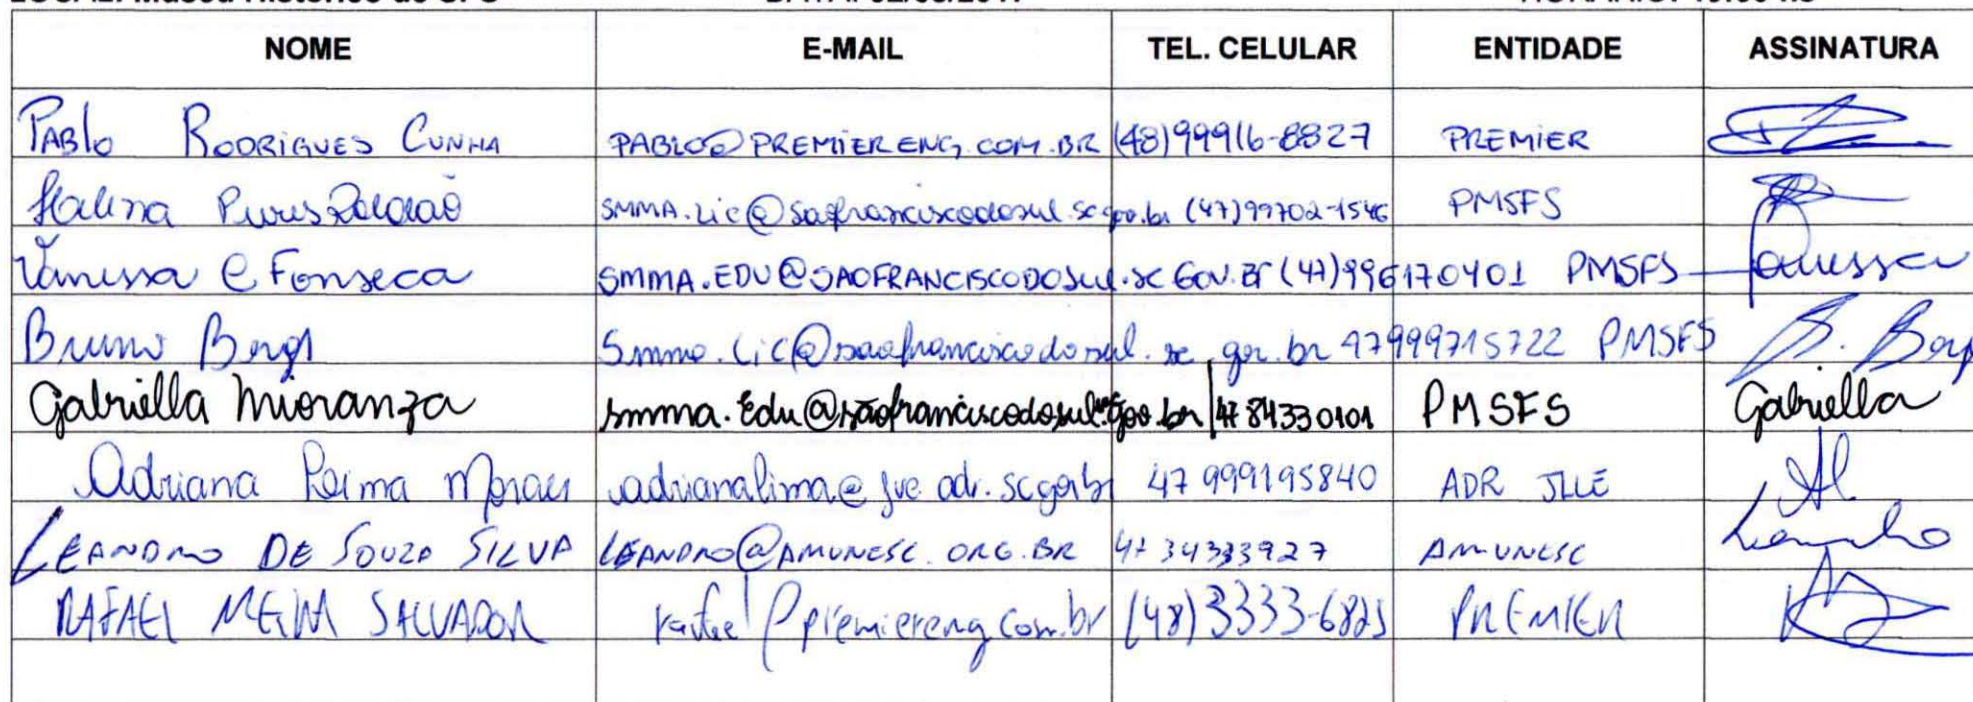 NOME E-MAIL TEL. CELULAR ENTIDADE ASSINATURA
PABlo RODRIGUES CUNHA PABLO@PREMIERENG.COM.BR (48)99916-8827 PREMIER
SMMA.Lic@saofranciscodosul.sc.gov.br (47)99702-1546 PMSFS
Vanessa C Fonseca SMMA.EDU@SAOFRANCISCODOSul.sc GOV.Br (47)996170401 PMSFS Vanessa
Bruno smma.Lic@saofranciscodosul.sc.gov.br 47999715722 PMSFS B.
Gabriella Mioranza smma.Edu@sãofranciscodosul.sc.gov.br 47 84330101 PMSFS Gabriella
Adriana Moraes adrianalima@jve.adr.sc.gov.br 47 999195840 ADR JLLE
LEANDRO DE SOUZA SILVA LEANDRO@AMUNESC.ORG.BR 47 34333927 AMUNESC Leandro
RAFAEL SALVADOR rafael@premiereng.com.br (48)3333-6825 PREMIER